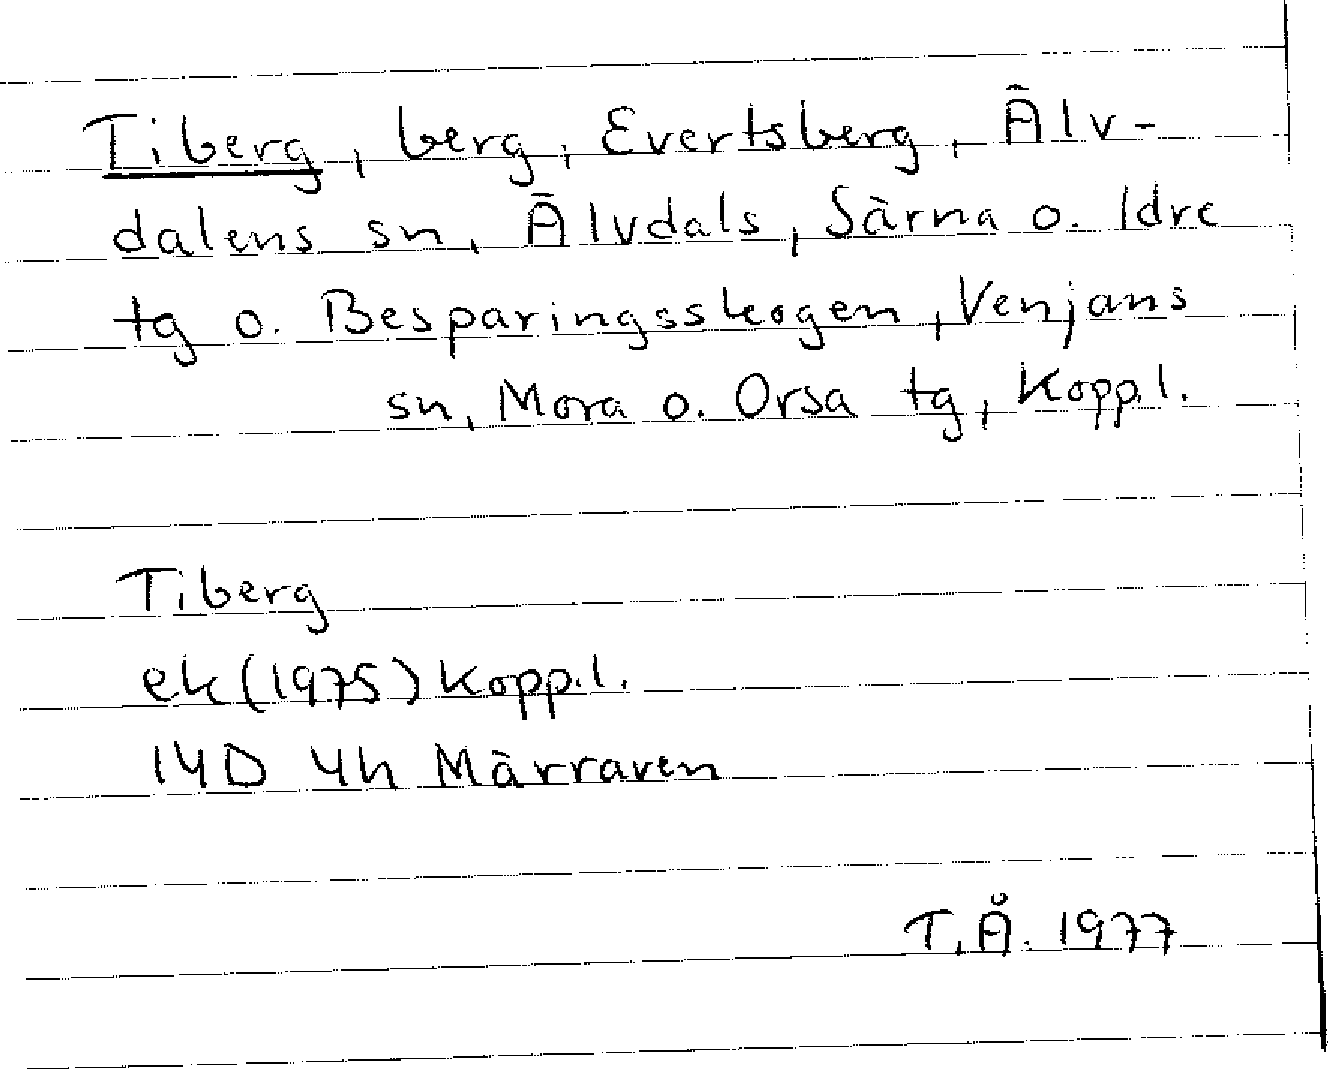 Tiberg, berg, Evertsberg, Älv-
dalens sn, Älvdals, Särna o. Idre
tg o. Besparingsskogen, Venjans
sn, Mora o. Orsa tg, Kopp.l.
Tiberg
ek(1975) Kopp.l.
14D 4h Märraven
T.Å. 1977